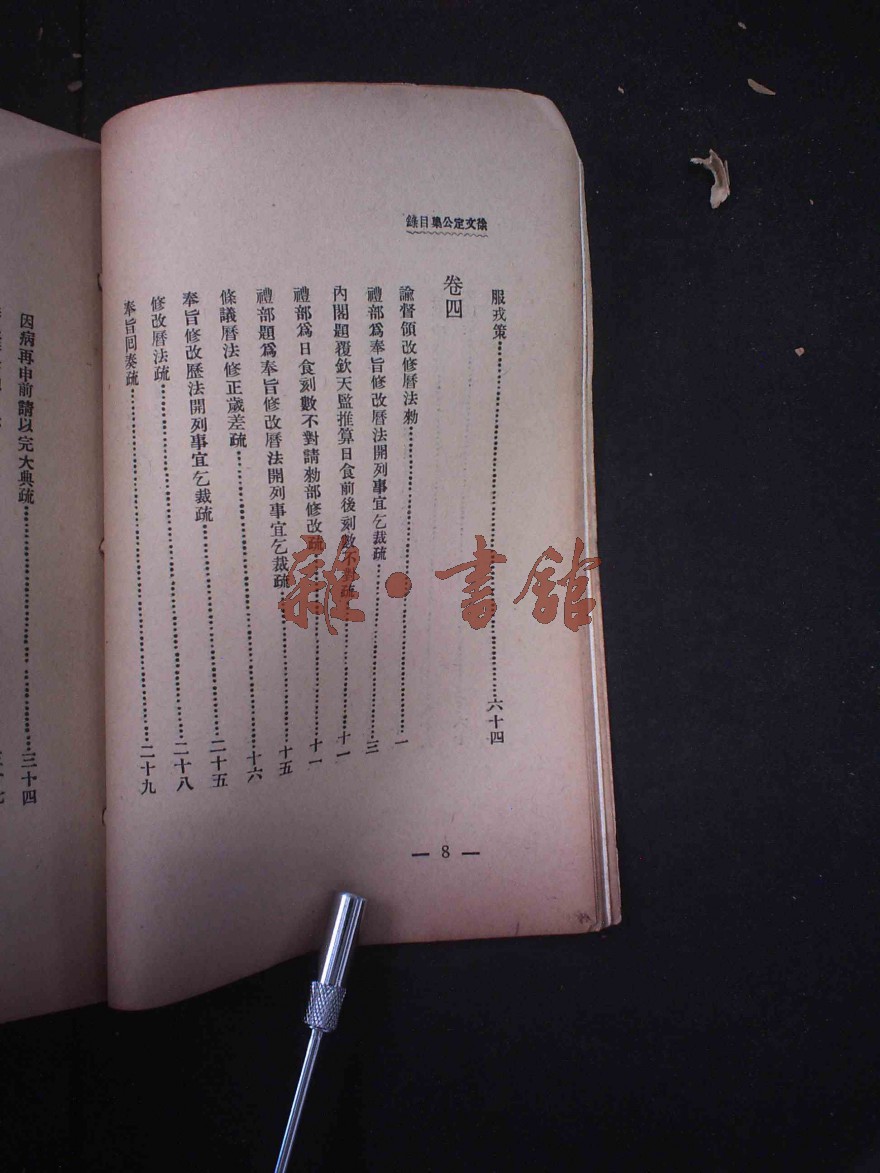 徐文定公集目錄
服戎策……六十四
卷四
諭督領改修曆法勑……一
禮部爲奉旨修改曆法開列事宜乞裁疏……三
內閣題覆欽天監推算日食前後刻數不對疏……十一
禮部爲日食刻數不對請勑部修改疏……十一
禮部題爲奉旨修改曆法開列事宜乞裁疏……十五
條議曆法修正歲差疏……十六
奉旨修改歷法開列事宜乞裁疏……二十五
修改曆法疏……二十八
奉旨回奏疏……二十九
— 8 —
因病再申前請以完大典疏……三十四
雜·書館